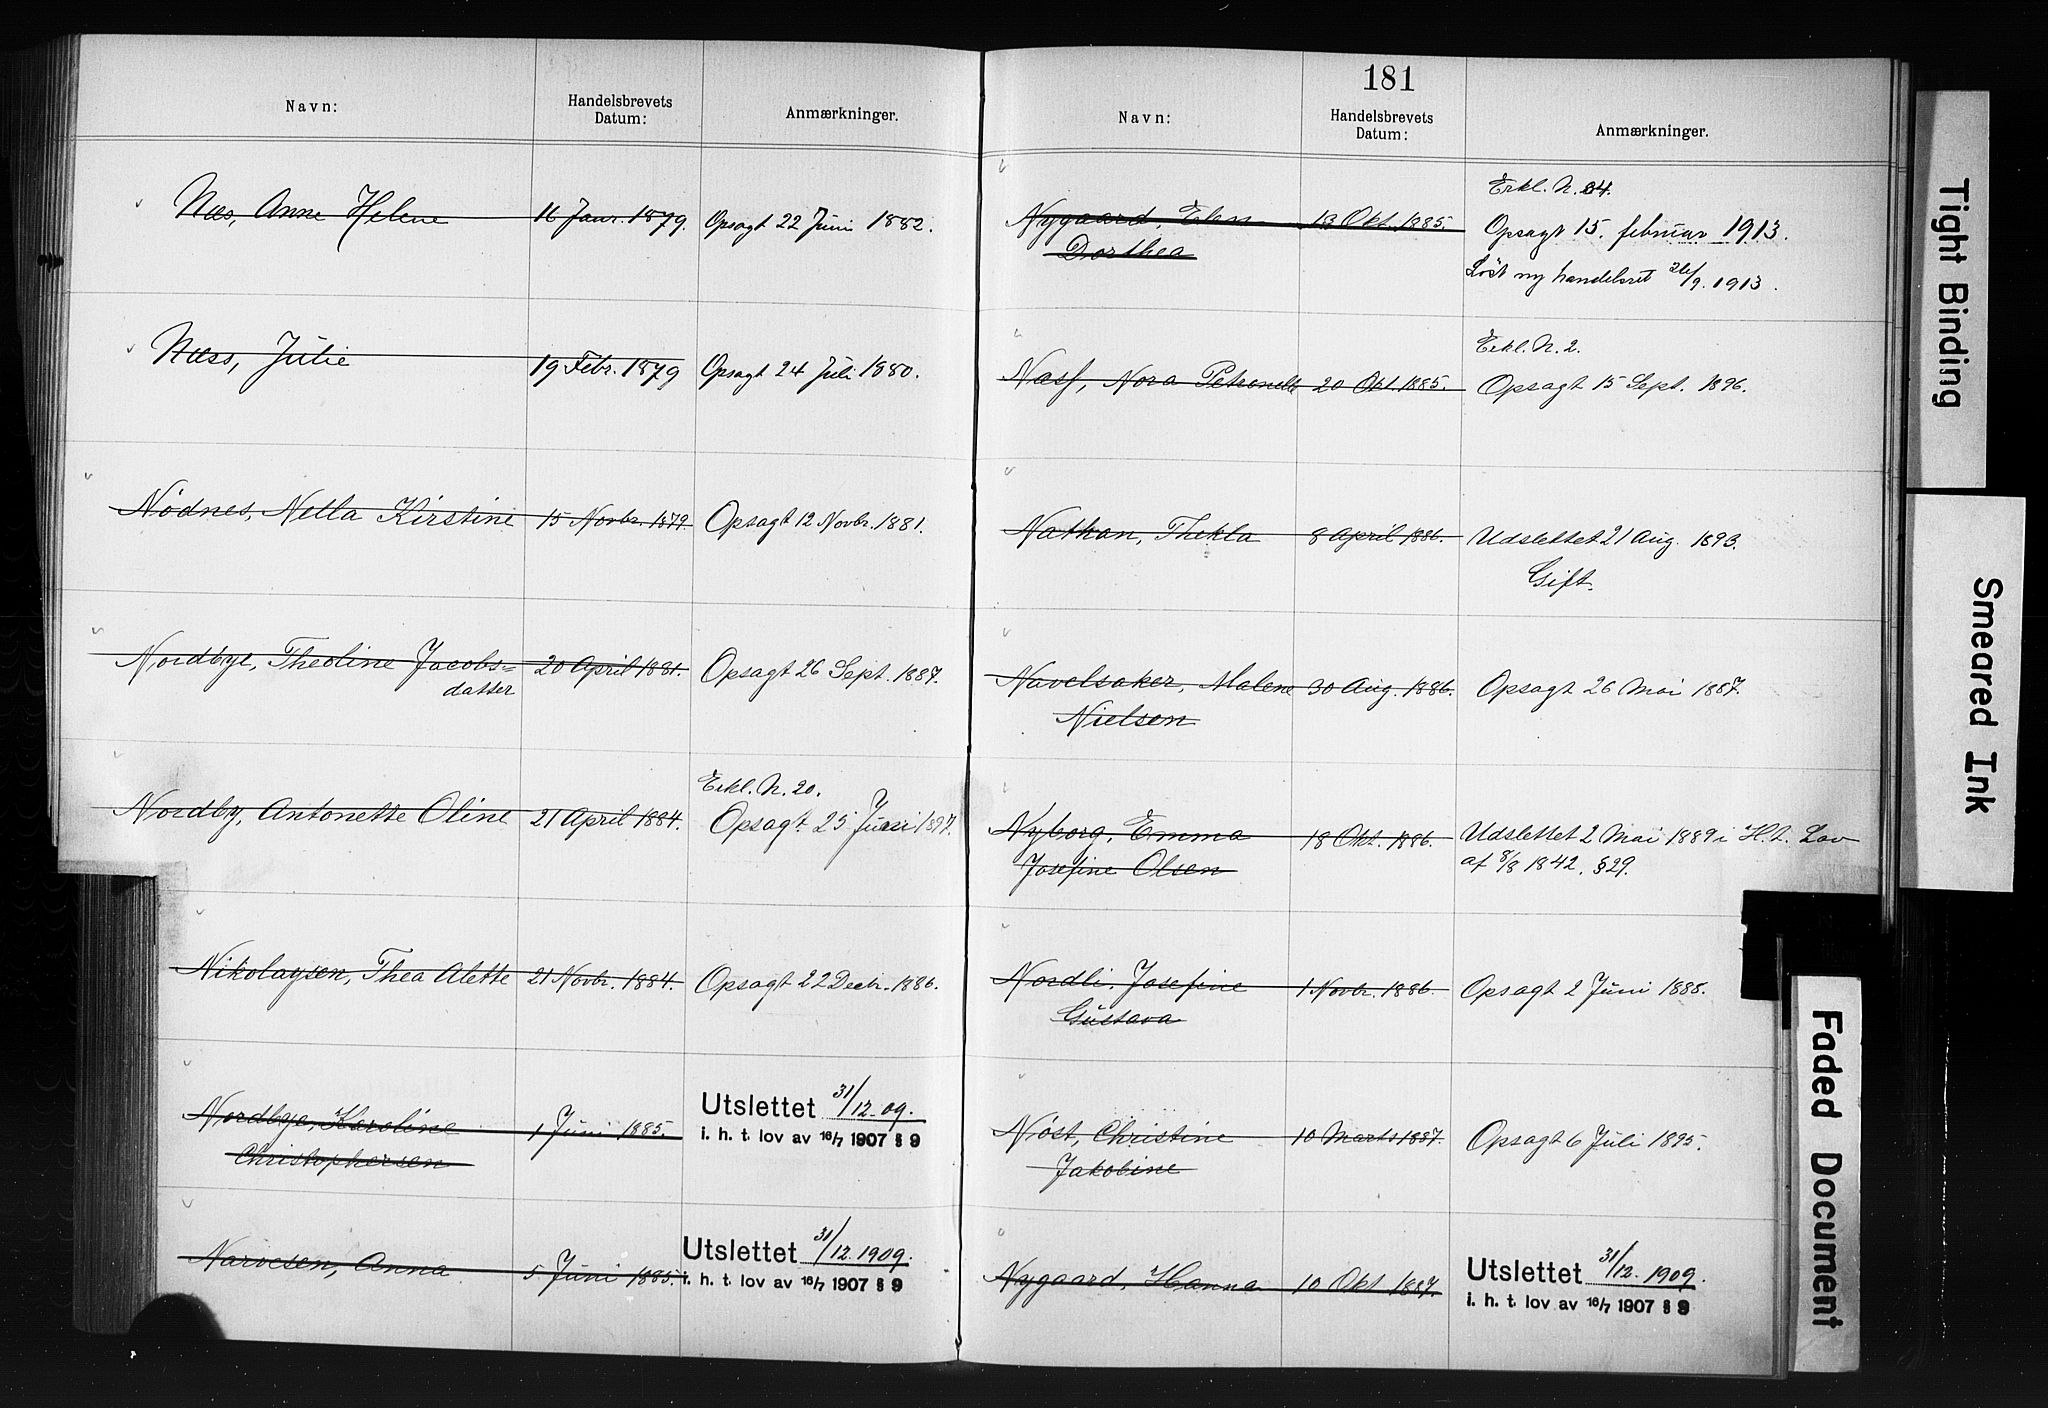 Navn:
Handelsbrevets
Datum:
Anmærkninger.
Næs, Anne Helene 16 Janr. 1879. Opsagt 22 Juni 1882.
Næss, Julie 19 Febr. 1879 Opsagt 24 Juli 1880.
Nødnes, Nella Kirstine 15 Novbr. 1879. Opsagt 12 Novbr. 1881.
Nordbye, Theoline Jacobs= 20 April 1881. Opsagt 26 Sept. 1887.
datter
Erkl. N. 20.
Nordby, Antonette Oline 21 April 1884. Opsagt 25 Juni 1897.
Nikolaysen, Thea Alette 21 Novbr. 1884. Opsagt 22 Decbr. 1886.
Utslettet 31/12-09.
Nordbye, Karoline 1 Juni 1885. i. h. t. lov av 16/7 1907 § 9
Christophersen
Utslettet 31/12.1909.
Narvesen, Anna 5 Juni 1885. i. h. t. lov av 16/7 1907 § 9
181
Navn:
Handelsbrevets
Datum:
Anmærkninger.
Erkl. N. 34.
Nygaard, Elen 13 Okt. 1885. Opsagt 15. februar 1913.
Dorthea
Løst ny handelsret 26/9. 1913.
Erkl. N. 2.
Næss, Nora Petronelle 20 Okt. 1885. Opsagt 15 Sept. 1896.
Nathan, Thekla 8 April 1886. Udslettet 21 Aug. 1893.
Gift.
Navelsaker, Malene 30 Aug. 1886. Opsagt 26 Mai 1887.
Nielsen
Nyborg, Emma 18 Okt. 1886. Udslettet 2 Mai 1889 i H. t. Lov
Josefine Olsen af 8/8 1842. § 29.
Nordli, Josefine 1 Novbr. 1886. Opsagt 2 Juni 1888.
Gustava
Nøst, Christine 10 Marts 1887. Opsagt 6 Juli 1895.
Jakobine
Utslettet 31/12. 1909.
Nygaard, Hanna 10 Okt. 1887. i. h. t. lov av 16/7 1907 § 9
Tight Binding
Smeared Ink
Faded Document